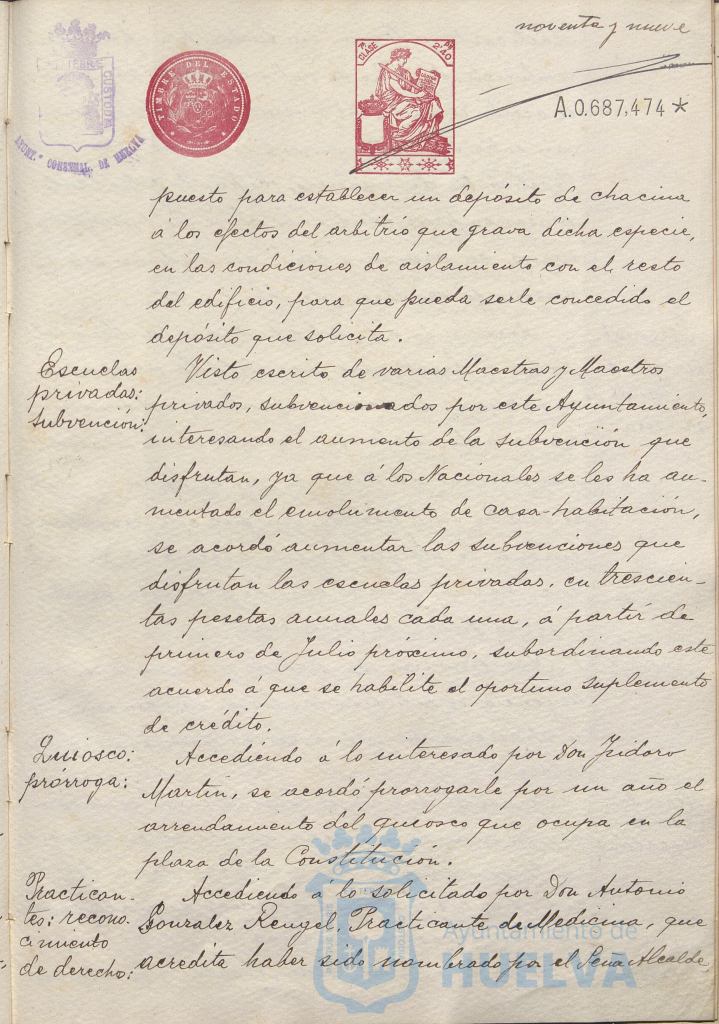 noventa y nueve
TIMBRE DEL ESTADO
7ª CLASE
PTS 2'40
A.0.687,474 *
AYUNT.º CONSTNAL. DE HUELVA
puesto para establecer un depósito de chacina
á los efectos del arbitrio que grava dicha especie,
en las condiciones de aislamiento con el resto
del edificio, para que pueda serle concedido el
depósito que solicita.
Escuelas
privadas:
subvención:
Visto escrito de varias Maestras y Maestros
privados, subvencionados por este Ayuntamiento,
interesando el aumento de la subvención que
disfrutan, ya que á los Nacionales se les ha au-
mentado el emolumento de casa-habitación,
se acordó aumentar las subvenciones que
disfrutan las escuelas privadas, en trescien-
tas pesetas anuales cada una, á partir de
primero de Julio próximo, subordinando este
acuerdo á que se habilite el oportuno suplemento
de crédito.
Quiosco:
prórroga:
Accediendo á lo interesado por Don Isidoro
Martin, se acordó prorrogarle por un año el
arrendamiento del quiosco que ocupa en la
plaza de la Constitución.
Practican-
tes: recono-
cimiento
de derecho:
Accediendo á lo solicitado por Don Antonio
Gonzalez Rengel, Practicante de Medicina, que
acredita haber sido nombrado por el Alcalde
Ayuntamiento de
HUELVA